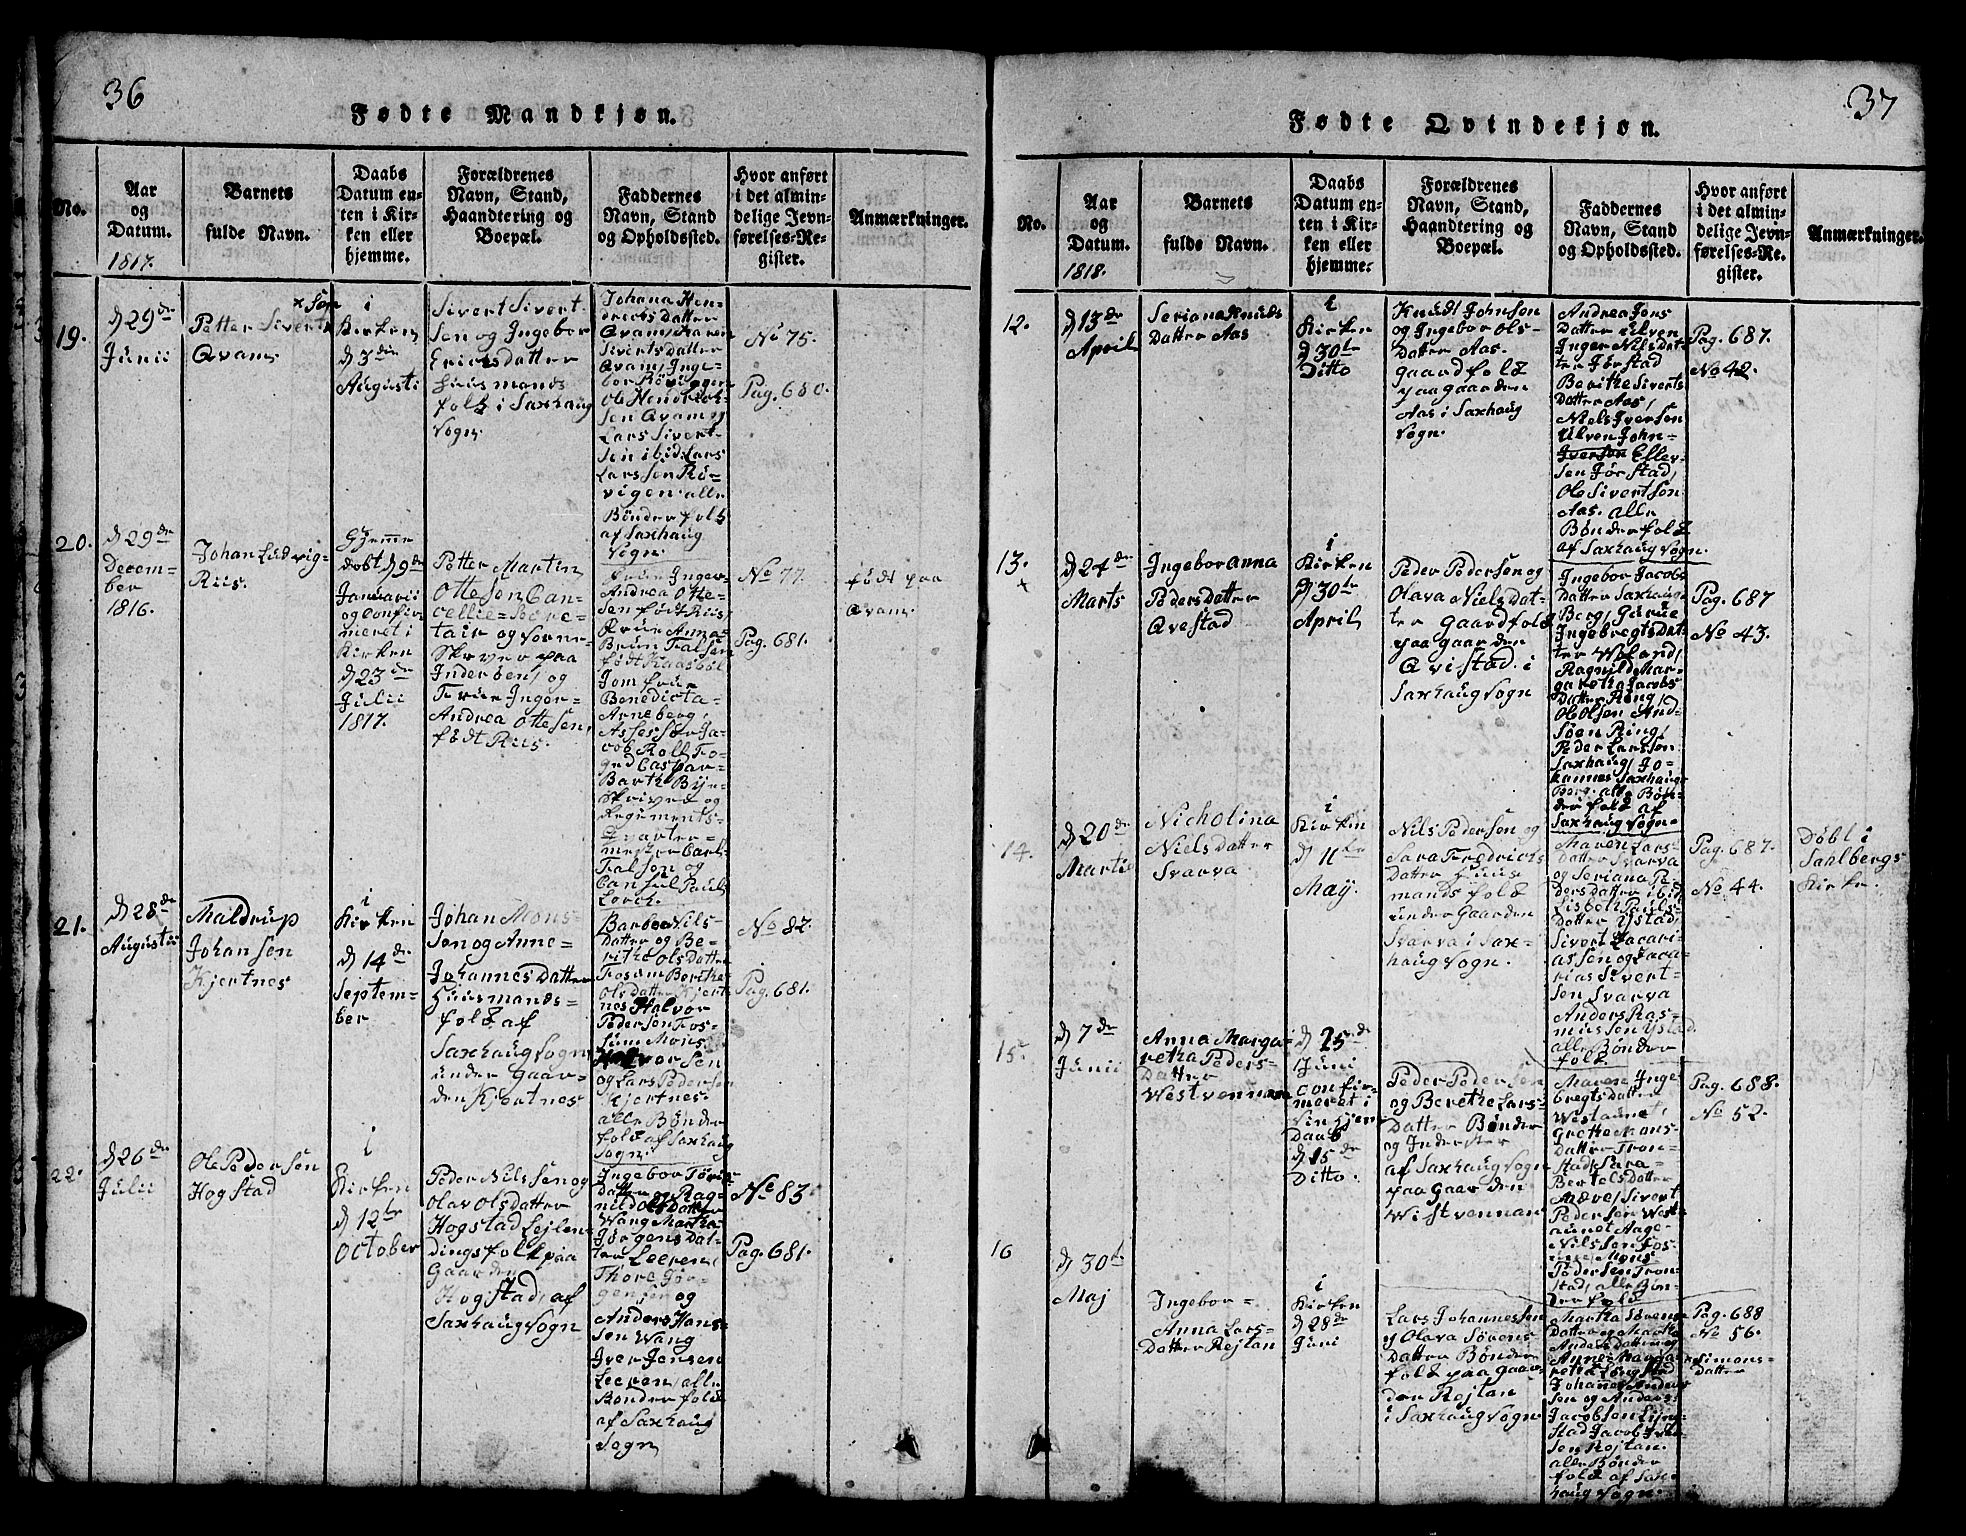 36
Fødte Mandkjøn.
No.
Aar
og
Datum.
1817.
Barnets
fulde Navn.
Daabs
Datum en-
ten i Kir-
ken eller
hjemme.
Forældrenes
Navn, Stand,
Haandtering og
Boepæl.
Faddernes
Navn, Stand
og Opholdssted.
Hvor anført
i det almin-
delige Jevn-
førelses-Re-
gister.
Anmærkninger.
19.
d 29de
Junii
x Søn
Petter Siverts
Qvam
i
Kirken
d 3die
Augusti
Sivert Sivert-
sen og Ingebor
Ericksdatter
Huusmands
folk i Saxhaug
Sogn.
Johana Hen-
dricksdatter
Qvam, Karen
Sivertsdatter
Qvam, Inge-
bor Røvigen
Ole Hendrich-
sen Qvam og
Lars Sivert-
sen ibid: Lars
Larssen Rø-
vigen. alle
Bønderfolk
af Saxhaug
Sogn.
No 75.
Pag. 680.
20.
d 29de
Decem-
ber
1816.
Johan Ludvig
Riis.
Hjemme
døbt d 9de
Januarii
og confir-
meret i
Kirken
d 23de
Julii
1817.
Petter Martin
Ottesen Can-
cellie-Secre-
tair og Soren-
skriver paa
Inderøen, og
Frue Inger-
Andrea Ottesen,
født Riis.
Frue Inger
Andrea Otte-
sen født Riis
Frue Anna
Bruun Falsen
født Kaasbøl
Jomfrue
Benedicta
Arneberg,
Assessor Ja-
cob Roll Fo-
ged Caspar
Barth Bye-
skriver og
Regiments-
Qvarter-
mester Carl
Falsen og
Consul Paul
Lorck.
No 77.
Pag. 681.
født paa
Qvam.
21.
d 28de
Augusti
Maldrup
Johansen
Kjertnes
i
Kirken
d 14de
Septem-
ber
Johan Mons-
sen og Anne-
Johannesdatter
Huusmands-
folk af
Saxhaug Sogn
under Gaar-
den Kjertnes
Barbo Nils-
datter og Be-
rithe Olsdatter
Fosam Berithe
Olsdatter Kjert-
nes Halvor
Pedersen Fos-
sum Mons
Halvorsen
og Lars Pedersen
Kjertnes
alle Bønder
folk af Saxhaug
Sogn.
No 82.
Pag. 681.
22.
d 26de
Julii
Ole Pedersen
Hogstad
i
Kirken
d 12te
October
Peder Nilssen og
Olav Olsdatter
Hogstad Lejlen-
dingsfolk paa
Gaarden
Hogstad, af
Saxhaug Sogn
Ingebor Tøris
datter og Rag-
nild Olsdatter
Wang Martha
Jørgensdat-
ter Leeren,
Thore Jør-
gensen og
Anders Hans-
sen Wang
Iver Jensen
Leeren, alle
Bønderfolk
af Saxhaug
Sogn
No 83.
Pag. 681.
37
Fødte Qvindekjøn.
No.
Aar
og
Datum.
1818.
Barnets
fulde Navn.
Daabs
Datum en-
ten i Kir-
ken eller
hjemme.
Forældrenes
Navn, Stand,
Haandtering og
Boepæl.
Faddernes
Navn, Stand
og Opholdssted.
Hvor anført
i det almin-
delige Jevn-
førelses-Re-
gister.
Anmærkninger.
12.
d 13de
April
Seriana Knuds
Datter Aas
i
Kirken
d 30te
Ditto
Knudt Johnsen
og Ingebor Ols-
Datter Aas.
Gaardfolk
paa gaarden
Aas i Saxhaug
Sogn.
Andrea Jons
Datter Ulven
Inger Nilsdat-
ter Jørstad
Berithe Siverts
Datter Aas,
Niels Iversen
Ulven John-
Iversen Eller-
sen Jørstad,
Ole Sivertsen
Aas. alle
Bønderfolk
af Saxhaug Sogn.
Pag. 687.
No 42.
13.
x
d 24de
Marts
Ingebor Anna
Pedersdatter
Qvestad
i
Kirken
d 30te
April
Peder Pedersen og
Olava Nielsdat-
ter Gaardfolk
paa gaarden
Qvistad i
Saxhaug Sogn
Ingebor Jacobs
Datter Saxhaug-
Berg, Gurue
Ingebregtsdat-
ter Woland,
Ragnild Mar-
garetha Jacobs
Datter Ring,
Ole Olsen And-
søen Ring,
Peder Larssen
Saxhaug, Jo-
hannes Saxhaug-
Berg. alle Bøn-
derfolk af
Saxhaug Sogn.
Pag. 687
No 43.
14.
d 20de
Martii
Nicholina
Nielsdatter
Svarva
i
Kirken
d 11te
May.
Nils Pedersen og
Sara Fredrichs
Datter Huus
mandsfolk
under Gaarden
Svarva i Sax-
haug Sogn.
Maren Lars-
datter Svarva
og Seriana Pe-
dersdatter ibid,
Lisbeth Pauls-
Datter Ystad,
Sivert Zacari-
assen og Zaca-
rias Sivert-
sen Svarva
Anders Ras-
mussen Ystad.
alle Bønder
folk
Pag. 687.
No 44.
Døbt i
Sahlbergs
Kirke.
15.
d 7de
Junii
Anna Marga-
retha Peders-
Datter
Westvennan
d 25de
Juni
confir-
meret i
sin hjem
Daab
d 15de
Ditto
Peder Pedersen
og Berethe Lars-
Datter Bønder
og Inderster
af Saxhaug Sogn
paa Gaarden
Wistvennan
Maren Inge
bregtsdatter
Westaunet,
Grethe Mons-
Datter Tron-
stad, Sara-
Bertels Datter
Mære, Sivert
Pedersen West-
aunet Aage-
Nilssen Fos-
Mons
Pedersen Tron-
stad, alle Bøn-
derfolk
Pag. 688.
No 52.
16
d 30te
Maj
Ingebor-
Anna Lars-
Datter Rejtan
i
Kirken
d 28de
Juni
Lars Johannessen
og Olava Sørens
Datter Bønder
folk paa Gaar-
den Rejtan
i Saxhaug Sogn
Martha Sørens
Datter og Martha
Andersdatter og
Anne Marga-
retha Langstad
Johannes Anders
sen og Anders
Jacobsen Ling-
stad Jacob
sen Rejtan.
alle Bønder
folk af Sax-
haug Sogn.
Pag. 688
No 56.
x Simons-
Datter